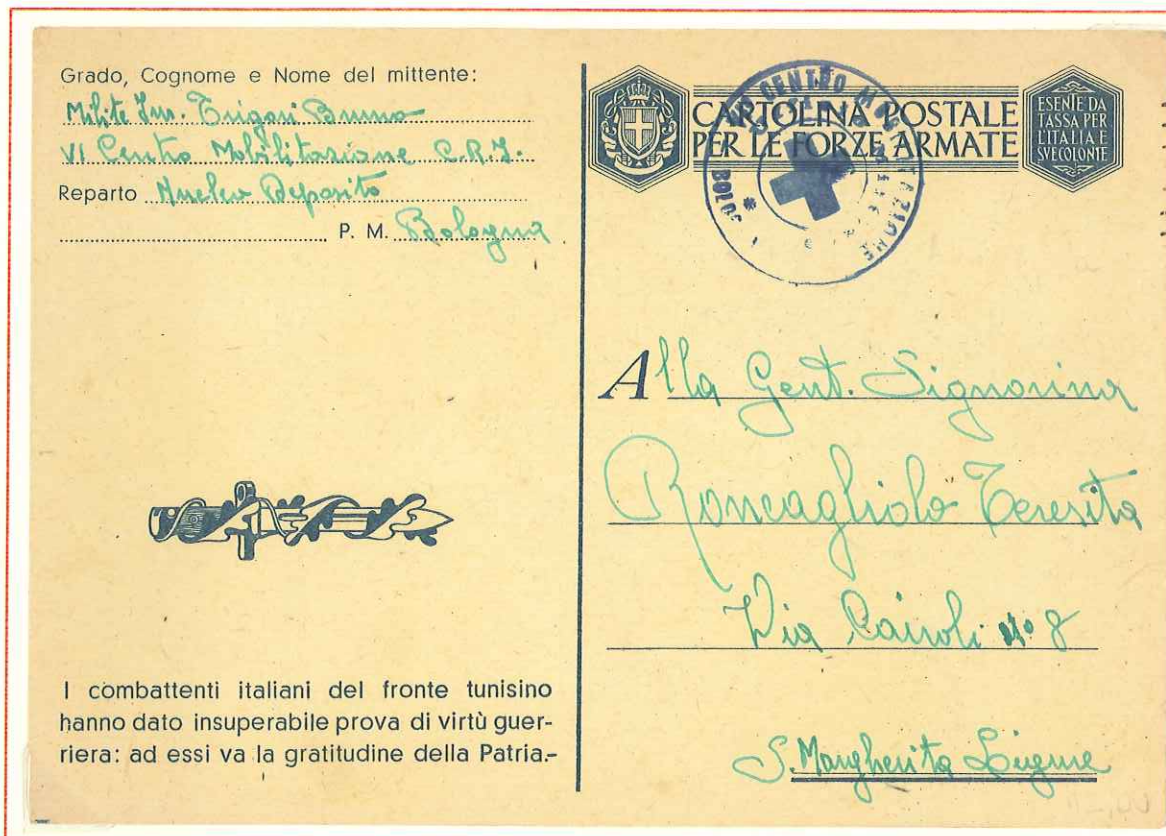 Grado, Cognome e Nome del mittente:
Milite Inv. Trigari Bruno
VI Centro Mobilitazione C.R.I.
Reparto Nucleo Deposito
P. M. Bologna
I combattenti italiani del fronte tunisino
hanno dato insuperabile prova di virtù guer-
riera: ad essi va la gratitudine della Patria.-
CENTRO MOBILITAZIONE
CARTOLINA POSTALE
PER LE FORZE ARMATE
ESENTE DA
TASSA PER
L'ITALIA E
SVE COLONIE
Alla Gent. Signorina
Roncagliolo Teresita
Via Cairoli N° 8
S. Margherita Ligure